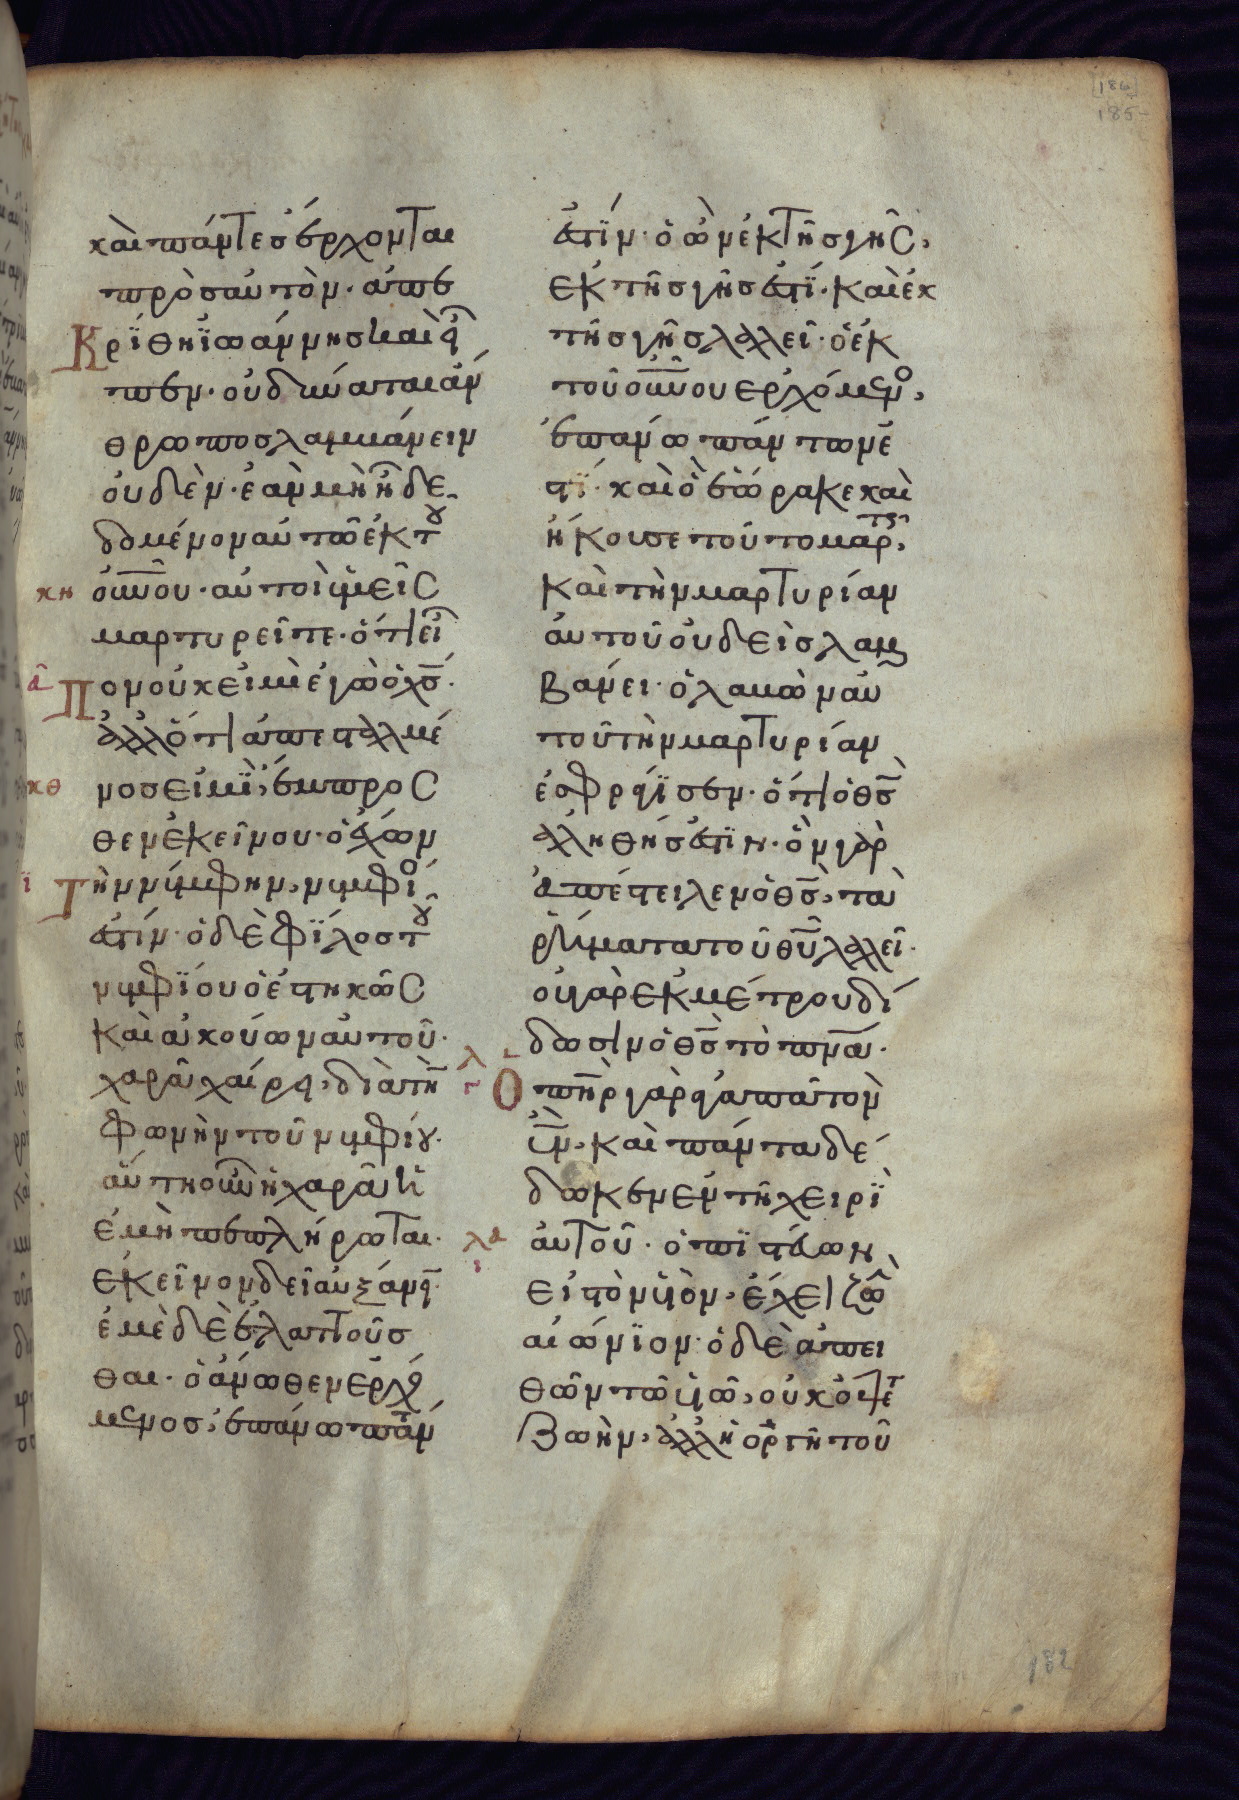 καὶ πάντες ἔρχονται
πρὸς αὐτὸν· ἀπε
κρίθη ἰωάννης καὶ εἶ
πεν· οὐ δύναται ἄν
θρωπος λαμβάνειν
οὐδὲν· ἐὰν μὴ ἦ δε
δομένον αὐτῶ ἐκ τοῦ
κη οὐνοῦ· αὐτοὶ ὑμεῖς
μαρτυρεῖτε· ὅτι εἶ
α πον οὐκ εἰμὶ ἐγὼ ὁ χς·
ἀλλ ὅτι ἀπεσταλμέ
κθ νος εἰμὶ, ἔμπροσ
θεν ἐκείνου· ὁ ἔχων
ι τὴν νύμφην, νυμφίο
ἐστίν· ὁ δὲ φίλος τοῦ
νυμφίου ὁ ἑστηκὼς
καὶ ἀκούων αὐτοῦ·
χαρᾶ χαίρει, διὰ τὴν
φωνὴν τοῦ νυμφίου·
αὕτη οὖν ἡ χαρὰ ἡ
ἐμὴ πεπλήρωται·
ἐκεῖνον δεῖ αὐξάνει
ἐμὲ δὲ ἐλαττοῦσ
θαι· ὁ ἄνωθεν ἐρχό
μενος, ἐπάνω πάντων
ἐστίν· ὁ ὢν ἐκ τῆς γῆς,
ἐκ τῆς γῆς ἐστὶ· καὶ ἐκ
τῆς γῆς λαλεῖ· ὁ ἐκ
τοῦ οὐνοῦ ἐρχόμενο,
ἐπάνω πάντων ἐ
στὶ· καὶ ὃ ἑώρακε καὶ
ἤκουσε τοῦτο μαρτυρεῖ,
καὶ τὴν μαρτυρίαν
αὐτοῦ οὐδεὶς λαμ
βάνει· ὁ λαβὼν αὐ
τοῦ τὴν μαρτυρίαν
ἐσφράγισεν· ὅτι ὁ θς
ἀληθής ἐστιν· ὃν γὰρ
ἀπέστειλεν ὁ θς, τὰ
ῥήματα τοῦ θυ λαλεῖ·
οὐ γὰρ ἐκ μέτρου δί
δωσιν ὁ θς τὸ πνα·
λ γ ὁ πηρ γὰρ ἀγαπᾶ τὸν
υν, καὶ πάντα δέ
δωκεν ἐν τῆ χειρὶ
λα ι αὐτοῦ· ὁ πιστεύων
εἰς τὸν υἱὸν, ἔχει ζωὴ
αἰώνιον· ὁ δὲ ἀπει
θῶν τῶ υἱῶ, οὐκ ὄψετ
ζωὴν, ἀλλ ἡ ὀργὴ τοῦ
185
182